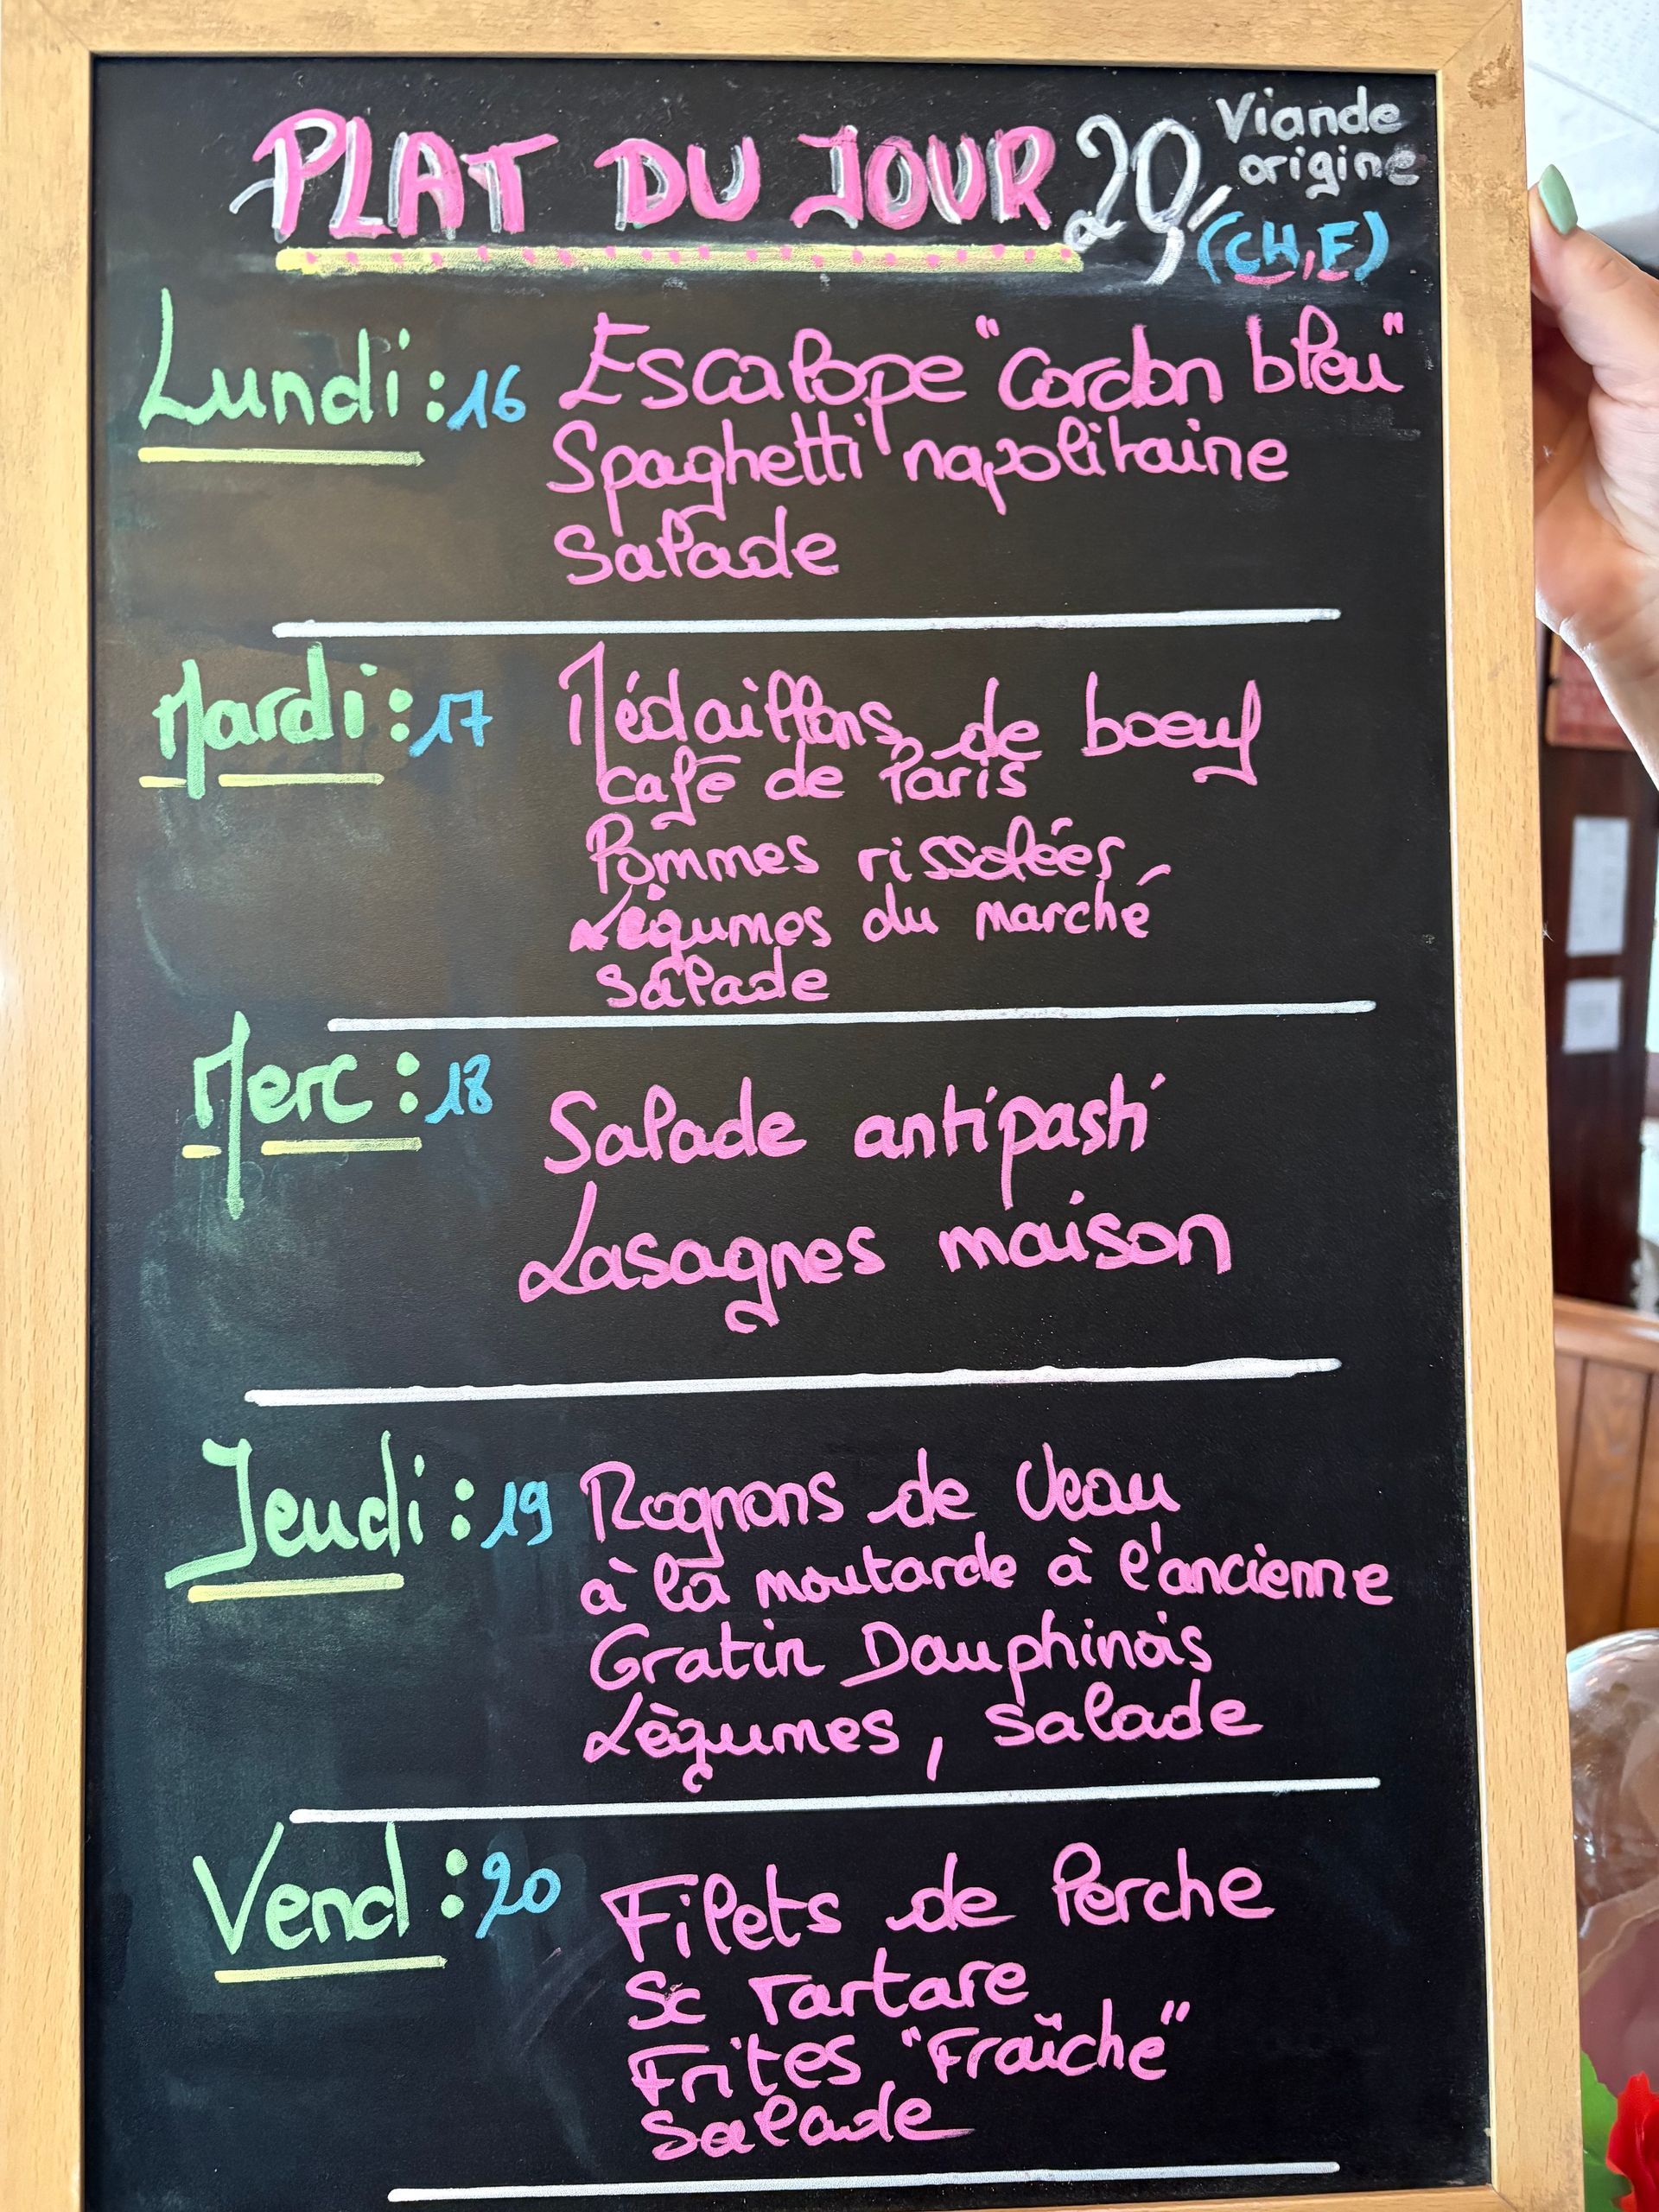 PLAT DU JOUR 20,-
Viande
origine
(CH, F)
Lundi : 16 Escalope "cordon bleu"
Spaghetti napolitaine
Salade
Mardi : 17 Médaillons de boeuf
café de Paris
Pommes rissolées
Légumes du marché
Salade
Merc : 18 Salade antipasti
Lasagnes maison
Jeudi : 19 Rognons de Veau
à la moutarde à l'ancienne
Gratin Dauphinois
Lègumes, salade
Vend : 20 Filets de Perche
Sc Tartare
Frites "Fraîche"
Salade